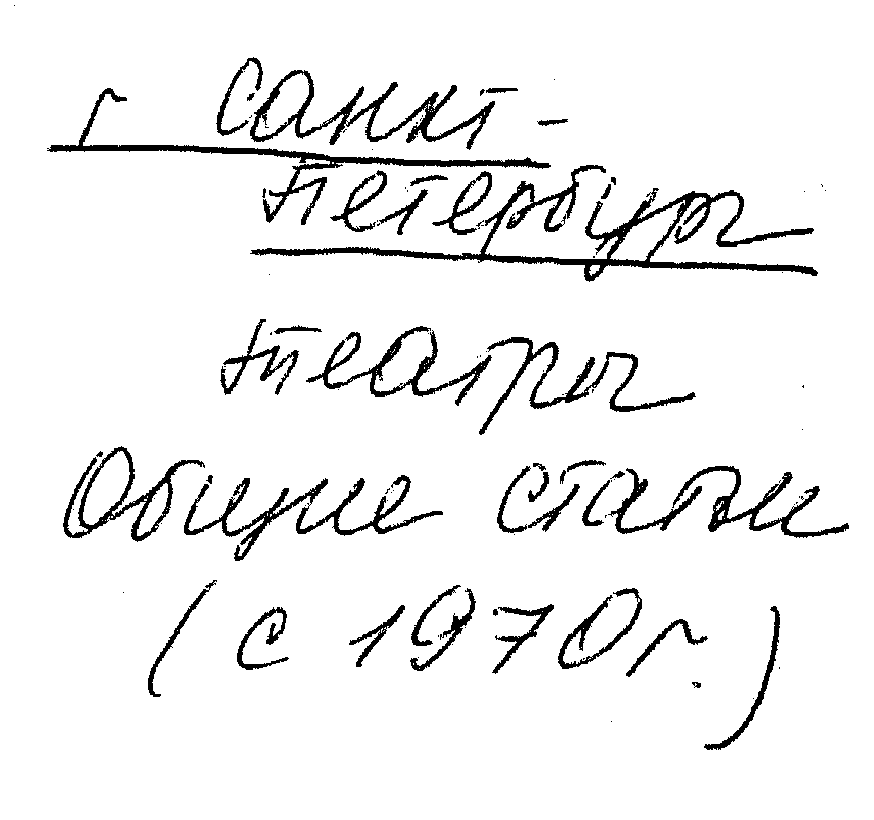 г Санкт-
Петербург
Театры
Общие статьи
(с 1970г.)